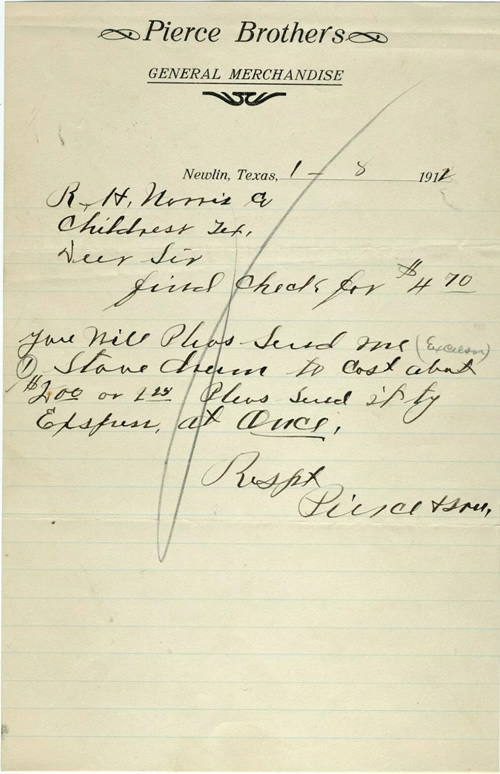 Pierce Brothers
GENERAL MERCHANDISE
Newlin, Texas, 1 - 8 1912
R. H. Norris Co
Childress Tex.
Deer Sir
find Check for $4 70
you Will Pleas Send me (Excelson)
① Stove drum to Cost about
$2.00 or 1.25 Pleas Send it by
Express, at Once,
Respt
Pierce & Son,